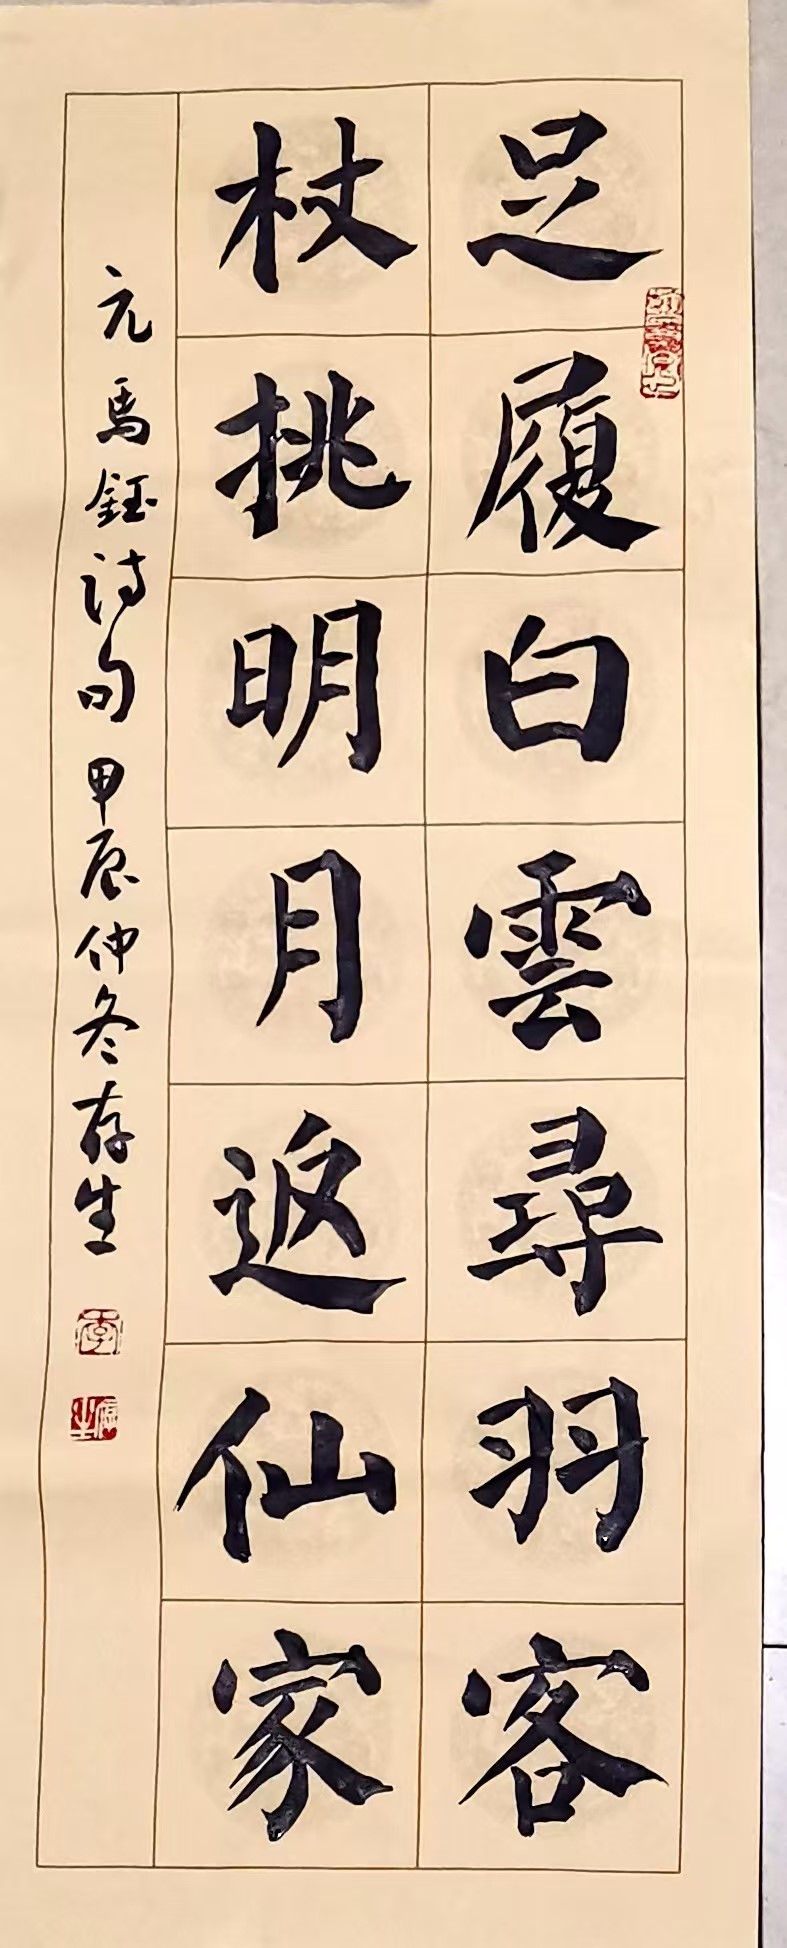 足履白雲尋羽客
杖挑明月返仙家
元馬鈺詩句 甲辰仲冬存生